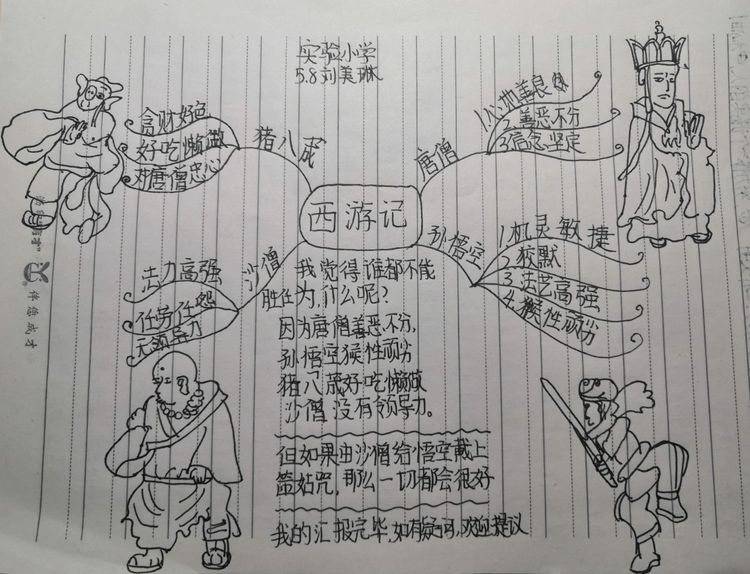 实验小学
5.8刘美琳
西游记
猪八戒
贪财好色
好吃懒做
对唐僧忠心
唐僧
1.心地善良
2.善恶不分
3.信念坚定
沙僧
法力高强
任劳任怨
无领导力
孙悟空
1.机灵敏捷
2.狡黙
3.法艺高强
4.猴性顽劣
我觉得谁都不能
胜任为,什么呢?
因为唐僧善恶不分,
孙悟空猴性顽劣
猪八戒好吃懒做
沙僧没有领导力。
但如果由沙僧给悟空戴上
咒,那么一切都会很好
我的汇报完毕,如有疑问,欢迎提议
伴您成才